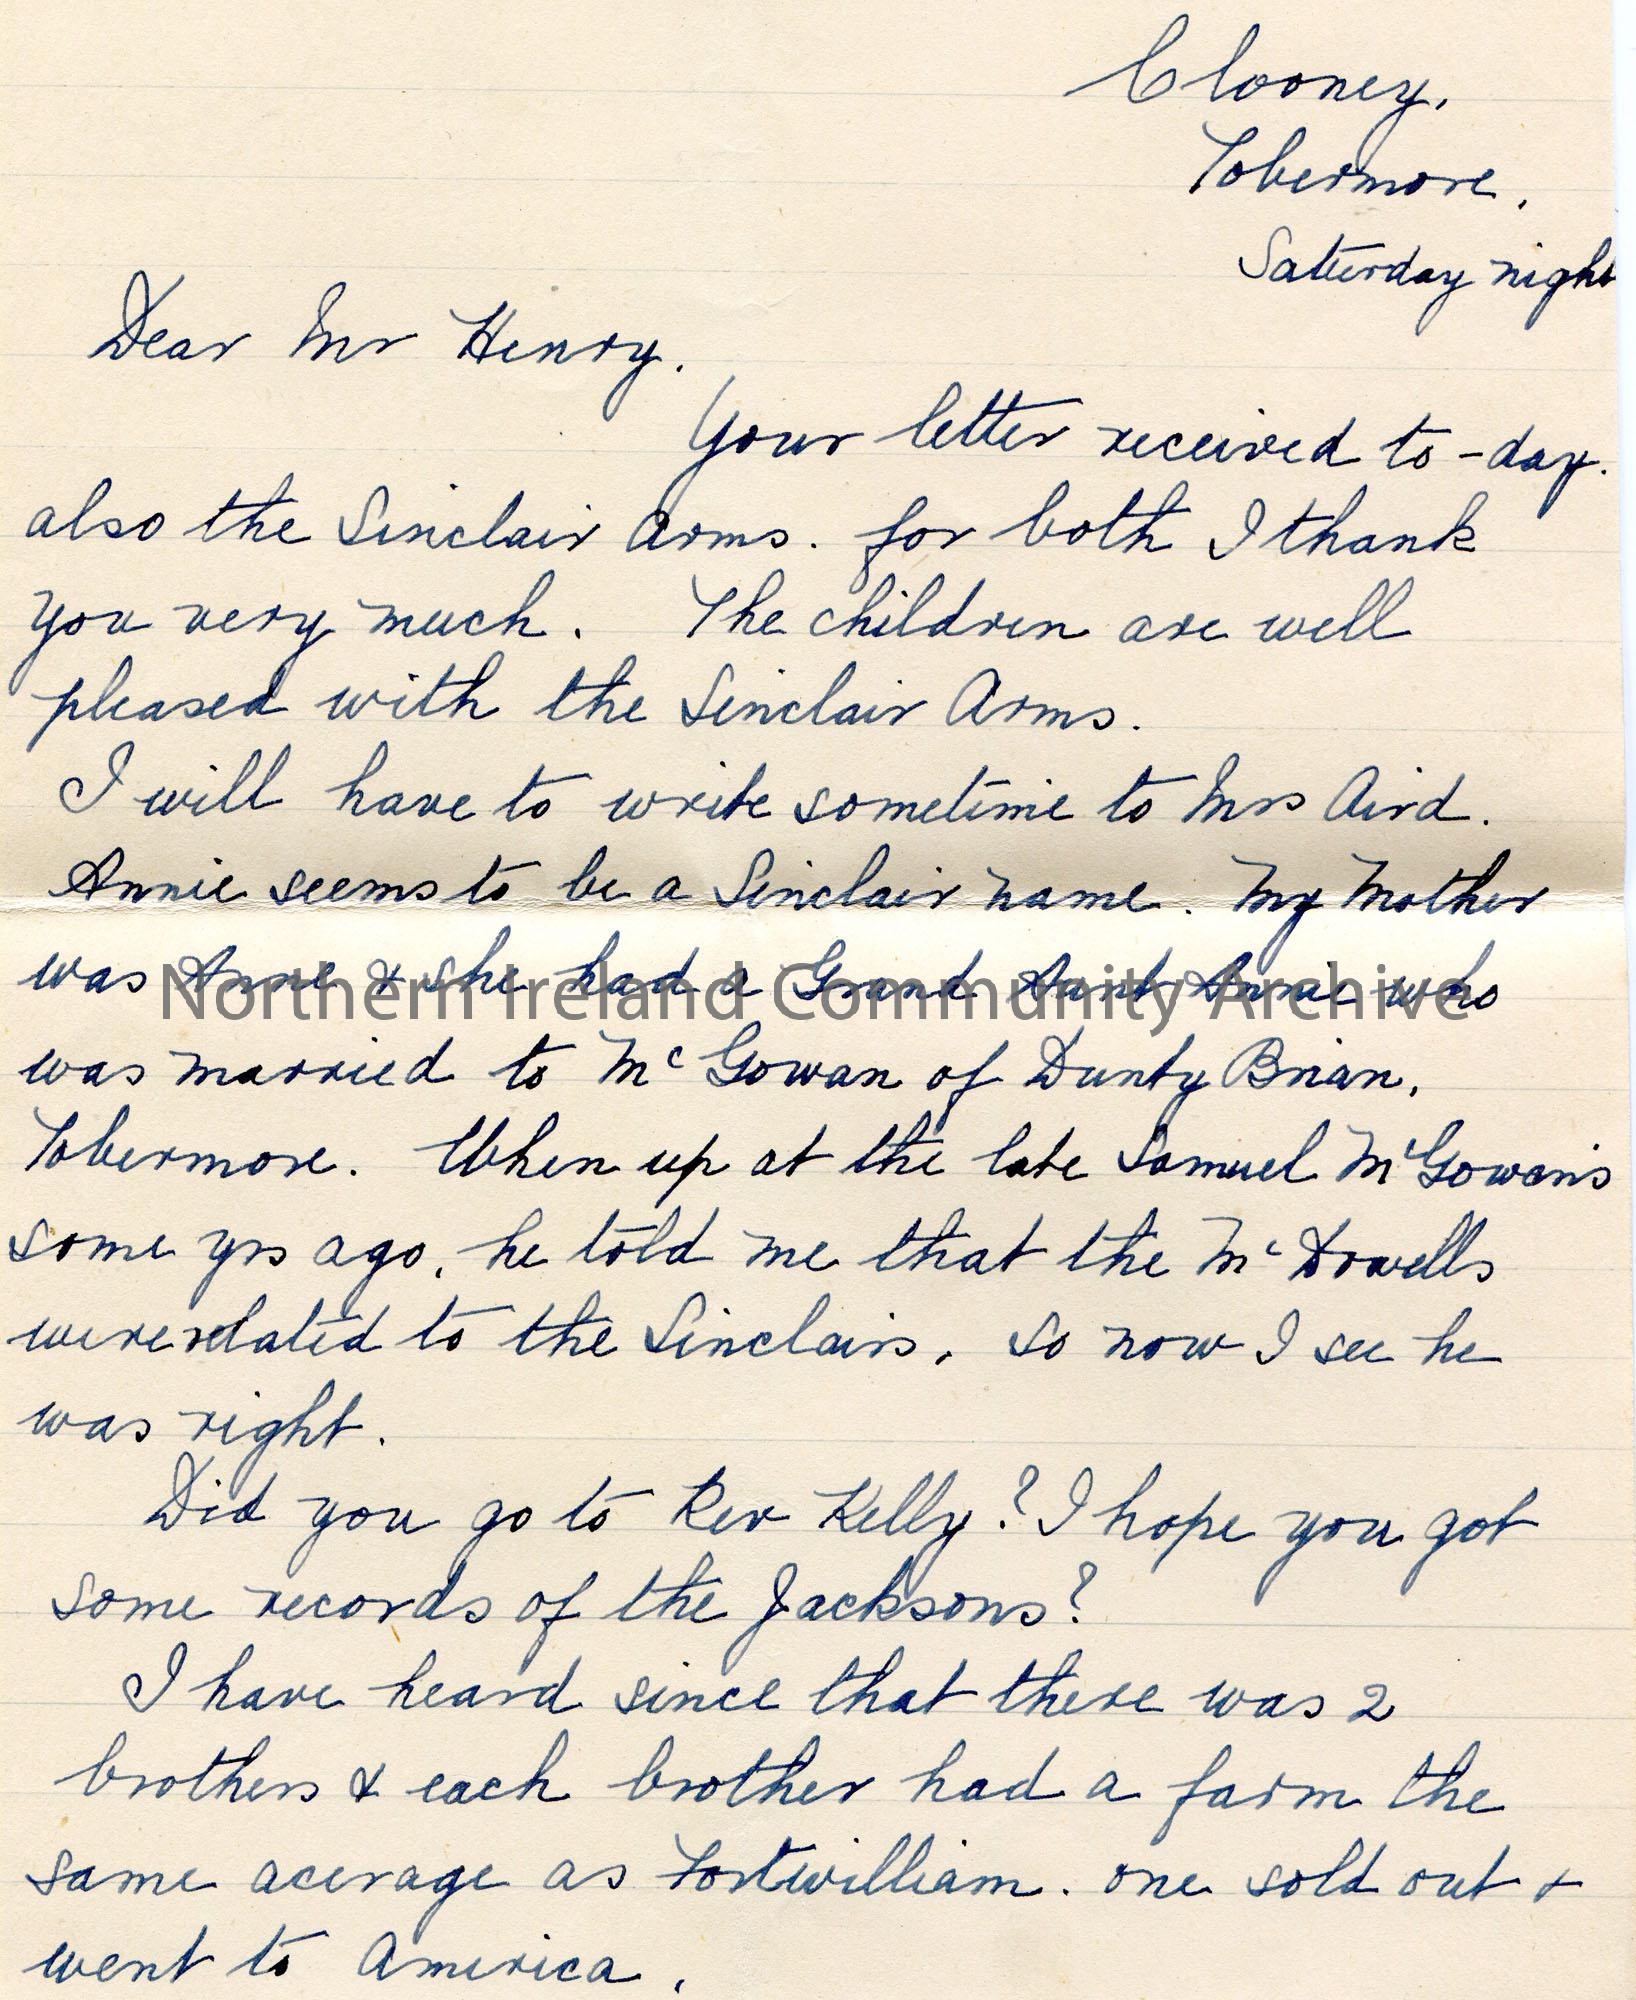 Clooney.
Tobermore.
Saturday night
Dear Mr Henry.
Your letter received to-day.
also the Sinclair Arms. for both I thank
you very much. The children are well
pleased with the Sinclair Arms.
I will have to write sometime to Mrs Aird.
Annie seems to be a Sinclair name. My Mother
was Anne & she had a Grand Aunt Annie who
Northern Ireland Community Archive
was married to McGowan of Dunty Brian,
Tobermore. When up at the late Samuel McGowans
some yrs ago, he told me that the McDowells
were related to the Sinclairs, so now I see he
was right.
Did you go to Rev Kelly? I hope you got
some records of the Jacksons?
I have heard since that there was 2
brothers & each brother had a farm the
same acerage as Fortwilliam. one sold out &
went to America.